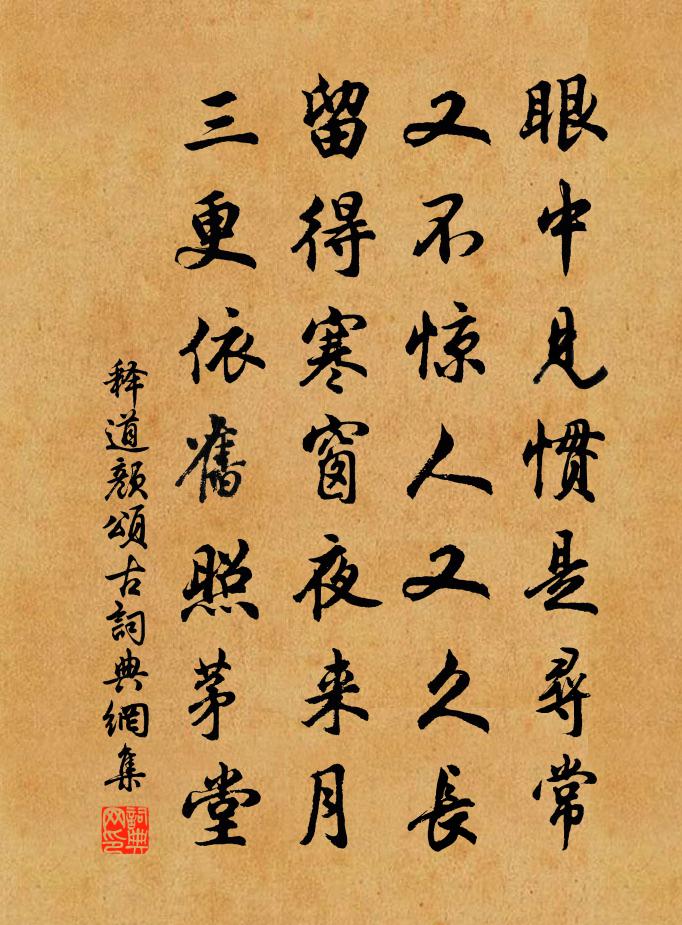 眼中见惯是尋常
又不惊人又久長
留得寒窗夜来月
三更依舊照茅堂
释道颜頌古詞典網集
詞典网印